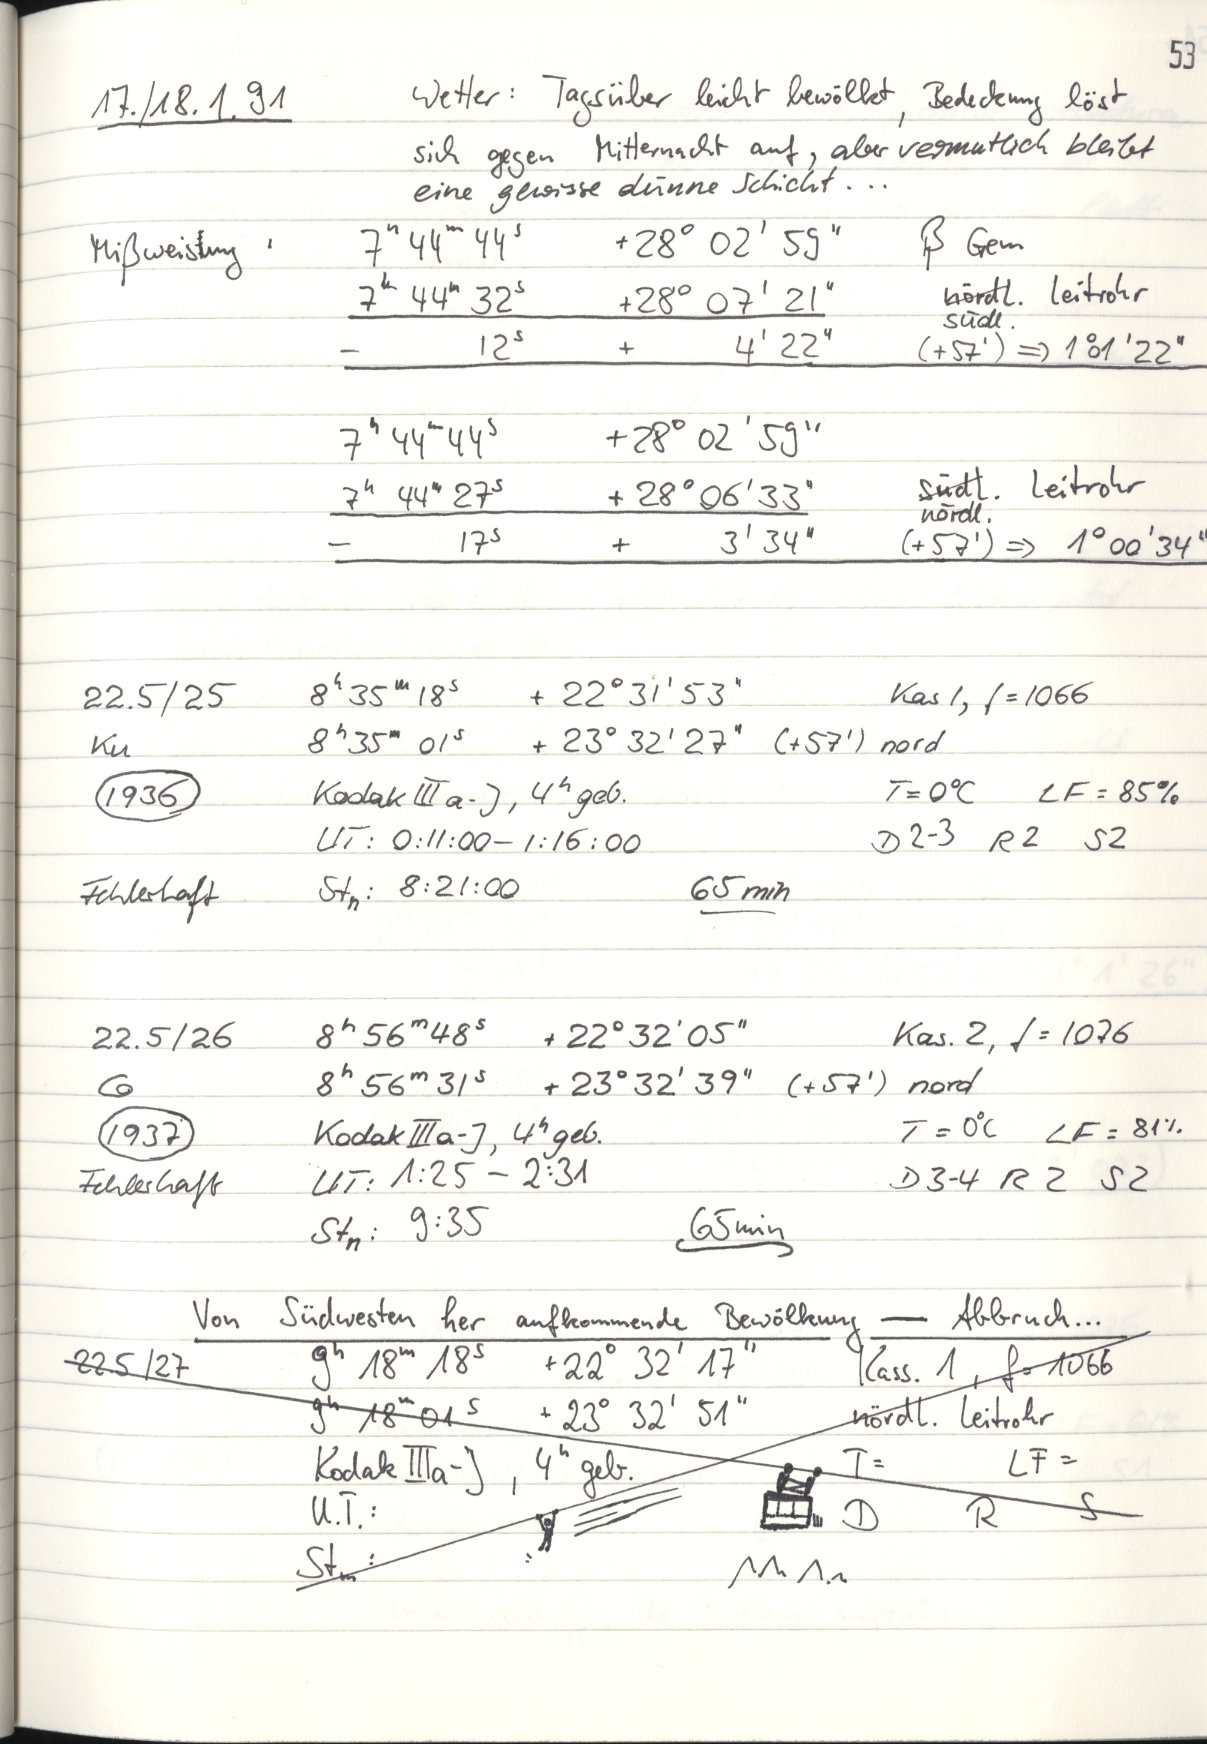 53
17./18.1.91 Wetter: Tagsüber leicht bewölkt, Bedeckung löst
sich gegen Mitternacht auf, aber vermutlich bleibt
eine gewisse dünne Schicht...
Mißweisung: 7h 44m 44s +28° 02' 59" β Gem
7h 44m 32s +28° 07' 21" nördl. Leitrohr
südl.
- 12s + 4' 22" (+57') ⇒ 1°01'22"
7h 44m 44s +28° 02' 59"
7h 44m 27s +28° 06' 33" südl. Leitrohr
nördl.
- 17s + 3' 34" (+57') ⇒ 1°00'34"
22.5/25 8h 35m 18s +22° 31' 53" Kas 1, f=1066
Ku 8h 35m 01s +23° 32' 27" (+57') nord
1936 Kodak IIIa-J, 4h geb. T=0°C LF=85%
UT: 0:11:00–1:16:00 D2-3 R2 S2
Fehlerhaft Stn: 8:21:00 65 min
22.5/26 8h 56m 48s +22° 32' 05" Kas. 2, f=1076
Co 8h 56m 31s +23° 32' 39" (+57') nord
1937 Kodak IIIa-J, 4h geb. T=0°C LF=81%
Fehlerhaft UT: 1:25 – 2:31 D3-4 R2 S2
Stn: 9:35 65min
Von Südwesten her aufkommende Bewölkung — Abbruch...
22.5/27 9h 18m 18s +22° 32' 17" Kass. 1, f=1066
9h 18m 01s +23° 32' 51" nördl. Leitrohr
Kodak IIIa-J, 4h geb. T= LF=
U.T.: D R S
Stm: